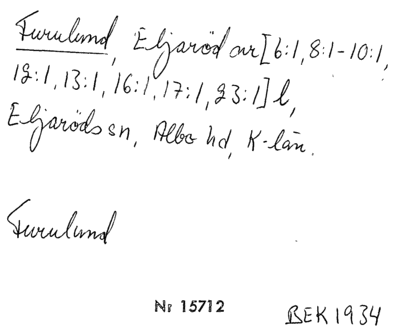 Furulund, Eljaröd ar [6:1, 8:1-10:1,
12:1, 13:1, 16:1, 17:1, 23:1] l,
Eljaröds sn, Albo hd, K-län.
Furulund
Nr 15712
BEK 1934